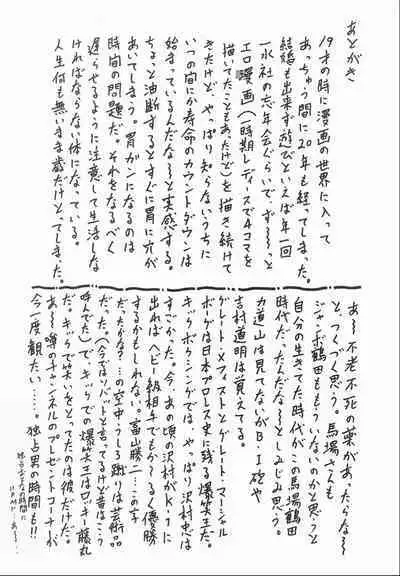 あとがき
19才の時に漫画の世界に入って
あっちゅう間に20年も経ってしまった。
結婚も出来ず遊びといえば年一回
一水社の忘年会ぐらいで、ず〜〜っと
エロ漫画(一時期レディースで4コマを
描いてたこともあったけど)を描き続けて
きたけど、やっぱり知らないうちに
いつの間にか寿命のカウントダウンは
始まっているんだな〜と実感する。
ちょっと油断するとすぐに胃に穴が
あいてしまう。胃がンになるのは
時間の問題だ。それをなるべく
遅らせるように注意して生活しな
ければならない体になっている。
人生何も無いまま歳だけとってしまった。
あ〜不老不死の薬があったらな〜
と、つくづく思う。馬場さんも
ジャンボ鶴田ももういないのかと思うと
自分の生きてた時代がこの馬場鶴田
時代だったんだな〜としみじみ思う。
力道山は見てないがB・I砲や
吉村道明は覚えてる。
グレート・メフィストとグレート・マーシャル
ボーグは日本プロレス史に残る爆笑王だ。
キックボクシングでは、やっぱり沢村忠は
すごかった。今、あの頃の沢村がK・1に
出ればヘビー級相手でもか〜るく優勝
するかもしれない。富山勝二…この字
だったかな?…の空中うしろ蹴りは芸術品
だった。(今ではソバットと言ってるけど昔はこう
呼んでた)で、キックでの爆笑王はロッキー藤丸
だ。キックで笑いをとってたのは彼だけだ。
あ〜噂のチャンネルのプレゼントコーナーが
今一度観たい……。独占男の時間も!!